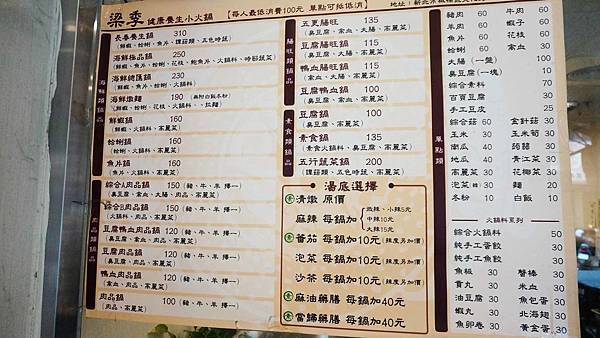 梁季 健康養生小火鍋 【每人最低消費100元 單點可抵低消】
海鮮類鍋品
長季養生鍋 310
海鮮極品鍋 250
海鮮總匯鍋 230
海鮮燉麵 190
鮮蝦鍋 160
(鮮蝦、火鍋料、高麗菜)
蛤蜊鍋 160
(蛤蜊、火鍋料、高麗菜)
魚片鍋 160
(魚片、火鍋料、高麗菜)
肉品類鍋品
綜合A肉品鍋 150 (豬、牛、羊 擇一)
綜合B肉品鍋 150 (豬、牛、羊 擇一)
(火鍋料、肉品、高麗菜)
豆腐鴨血肉品鍋 150 (豬、牛、羊 擇一)
豆腐肉品鍋 120 (豬、牛、羊 擇一)
(臭豆腐、肉品、高麗菜)
鴨血肉品鍋 120 (豬、牛、羊 擇一)
肉品鍋 100 (豬、牛、羊 擇一)
(肉品、高麗菜)
腸旺類鍋品
五更腸旺 115
豆腐腸旺鍋 135
鴨血腸旺鍋 115
豆腐鴨血鍋 100
豆腐鍋 100
(臭豆腐、高麗菜)
素食類鍋品
素食鍋 135
(素食火鍋料、臭豆腐、高麗菜)
五行蔬菜鍋 200
(菇類、五色時蔬、高麗菜)
湯底選擇
素 清燉 原價
麻辣 每鍋加 微辣、小辣5元
中辣10元
大辣15元
素 番茄 每鍋加10元 (辣度另加價)
泡菜 每鍋加10元 (辣度另加價)
沙茶 每鍋加10元 (辣度另加價)
素 麻油藥膳 每鍋加40元
素 當歸藥膳 每鍋加40元
單點類
豬肉 60 牛肉
羊肉 60 蝦子
魚片 60 花枝
蛤蜊 60
大腸 (一盤) 100
臭豆腐(一塊) 10
綜合素料 70
百頁豆腐 30
手工豆皮 25
綜合菇 60 金針菇 30
玉米 30 玉米筍 30
南瓜 40 蒟蒻 30
地瓜 40 青江菜 30
高麗菜 30 花椰菜 30
泡菜 30 麵 20
冬粉 10 白飯 10
火鍋料系列
綜合火鍋料 50
純手工蛋餃 50
純手工魚餃 50
魚板 30 蟹棒 30
貢丸 30 米血 30
油豆腐 30 魚包蛋 30
蝦丸 30 北海翅 30
魚卵卷 30 黃金蛋 30